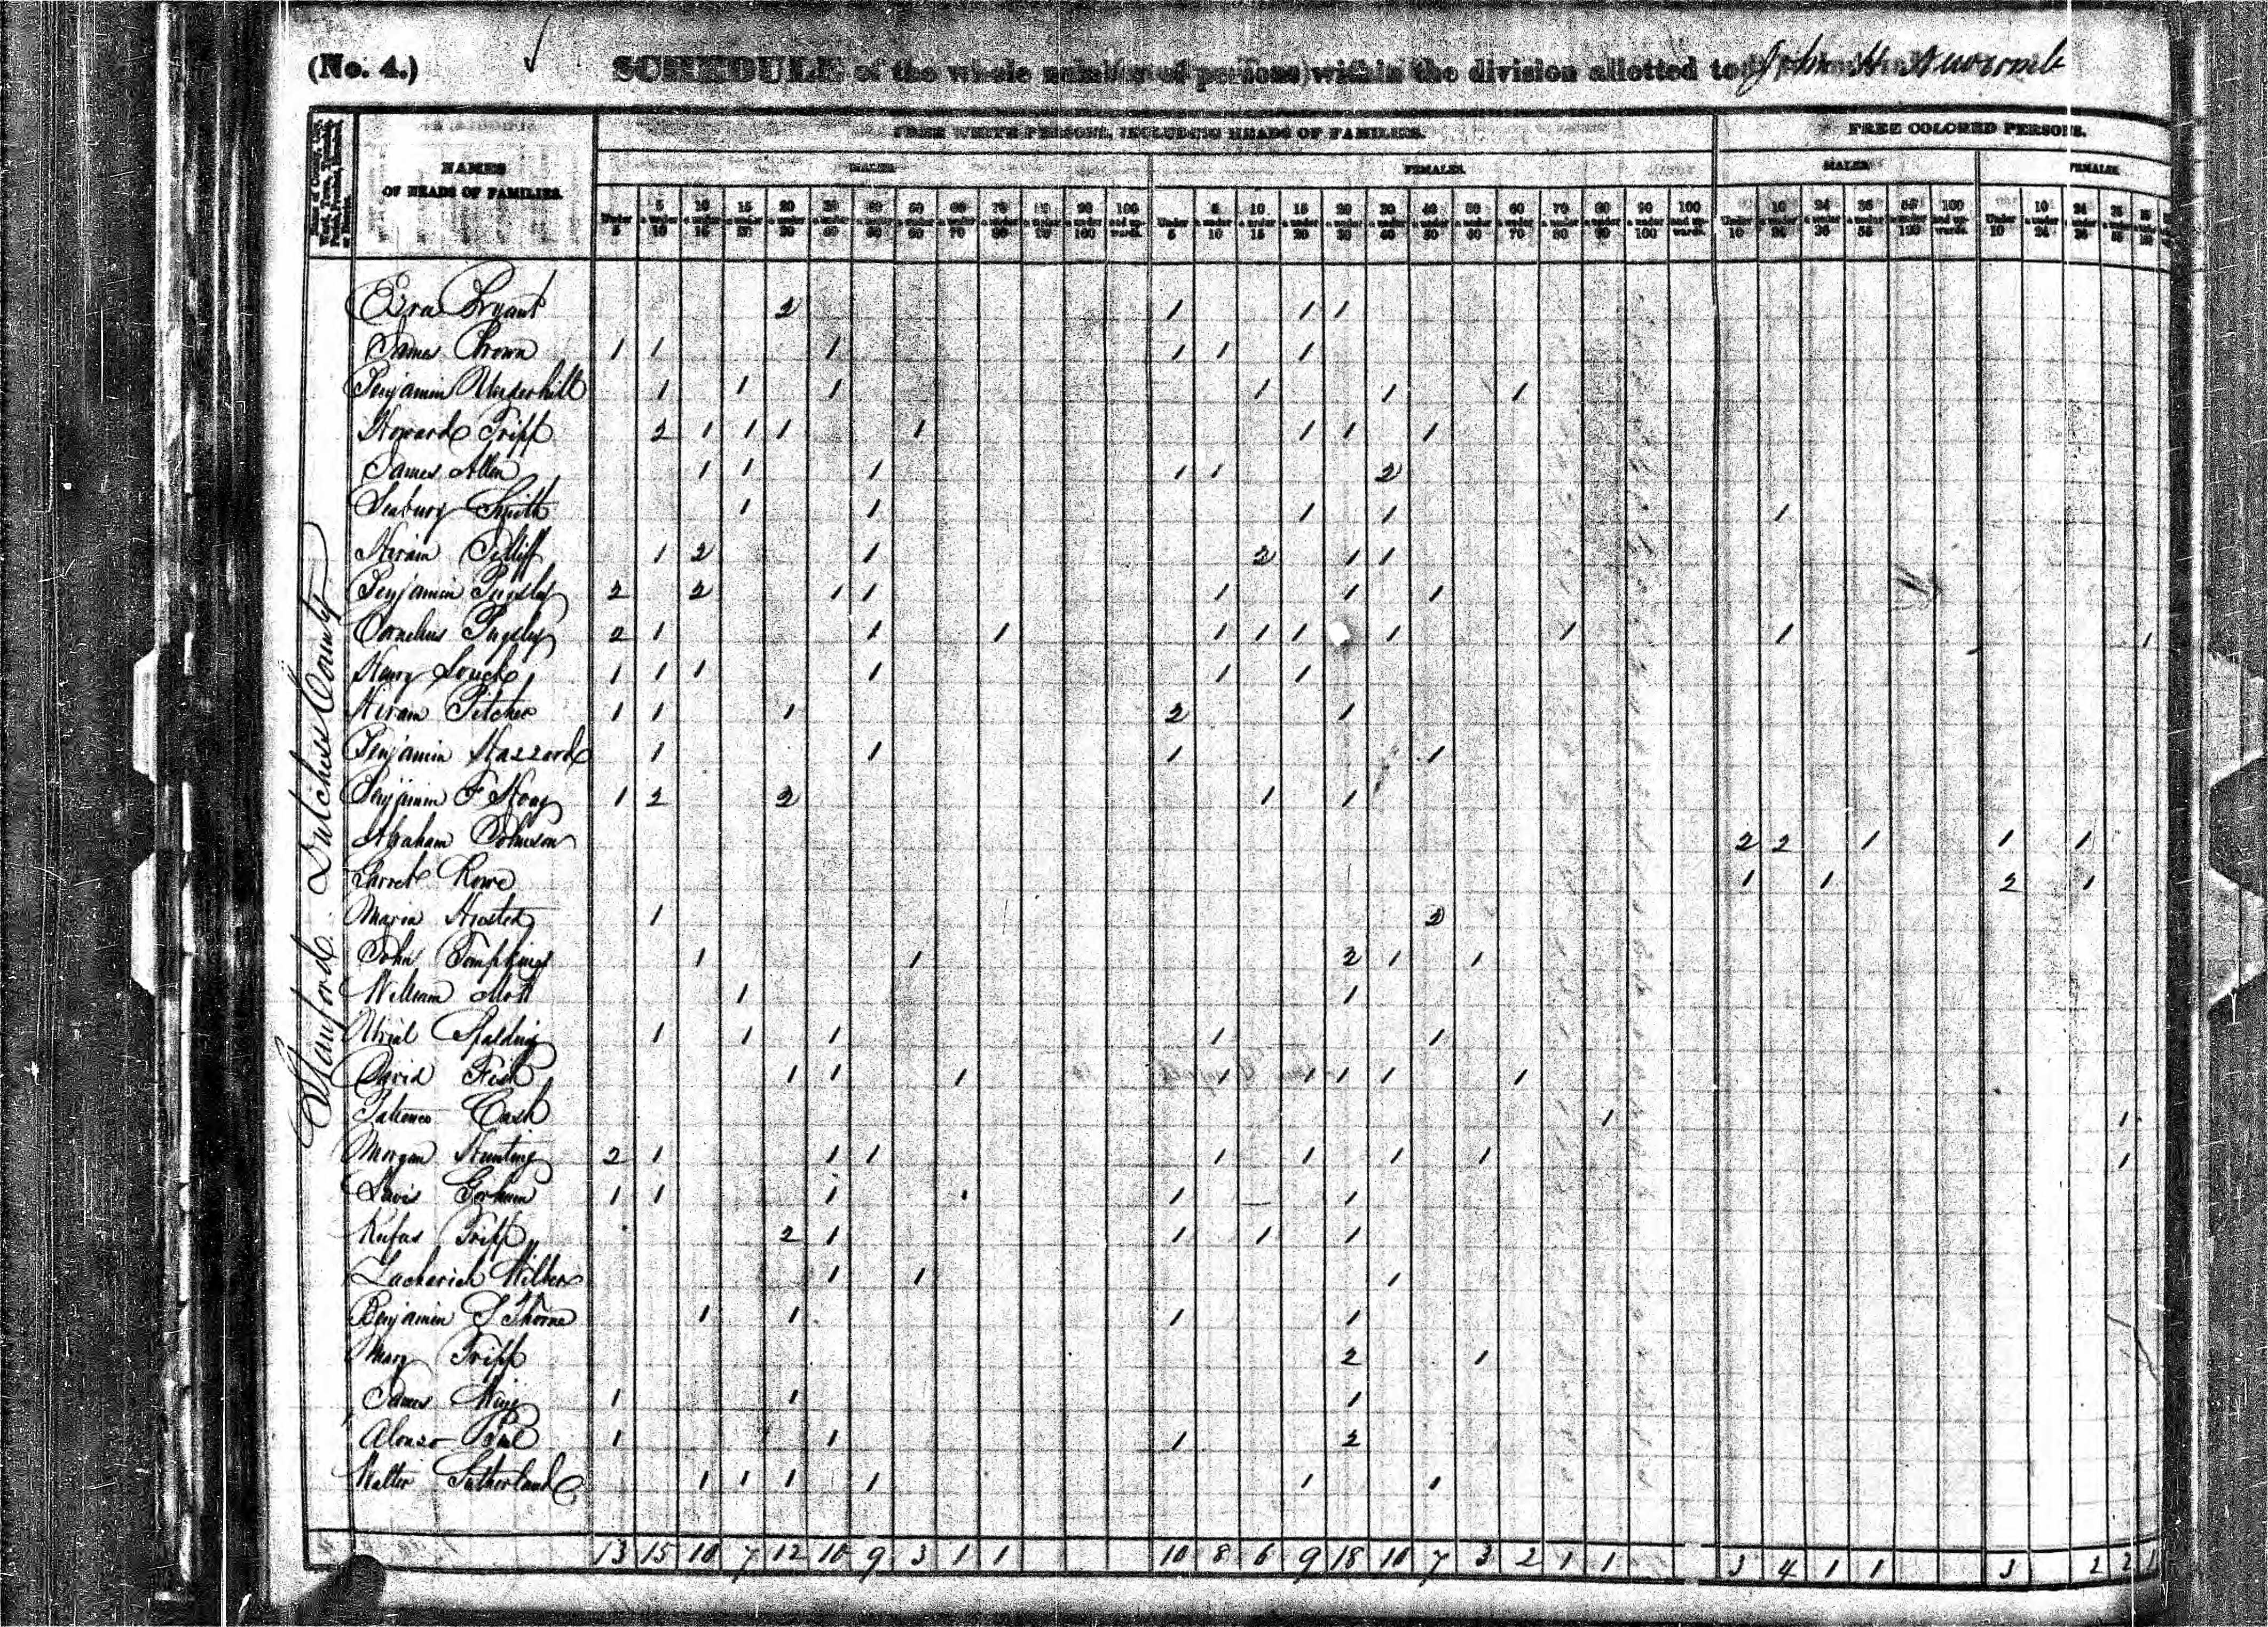 (No. 4.) SCHEDULE of the whole number of persons within the division allotted to John H Newcomb
NAMES OF HEADS OF FAMILIES.
FREE WHITE PERSONS, INCLUDING HEADS OF FAMILIES.
FREE COLORED PERSONS.
MALES FEMALES. MALES FEMALES
Under 5 5 & under 10 10 & under 15 15 & under 20 20 & under 30 30 & under 40 40 & under 50 50 & under 60 60 & under 70 70 & under 80 80 & under 90 90 & under 100 100 and upwards. Under 5 5 & under 10 10 & under 15 15 & under 20 20 & under 30 30 & under 40 40 & under 50 50 & under 60 60 & under 70 70 & under 80 80 & under 90 90 & under 100 100 and upwards. Under 10 10 & under 24 24 & under 36 36 & under 55 55 & under 100 100 and upwards. Under 10 10 & under 24 24 & under 36
Stanford Dutchess County
Ezra Bryant 2 1 1 1
James Brown 1 1 1 1 1 1
Benjamin Underhill 1 1 1 1 1 1
Howard Tripp 2 1 1 1 1 1 1 1
James Allen 1 1 1 1 1 2
Seabury Smith 1 1 1 1 1
Hiram 1 2 1 2 1 1
Benjamin Pugsley 2 2 1 1 1 1 1
Cornelius Pugsley 2 1 1 1 1 1 1 1 1 1 1
Henry 1 1 1 1 1 1
Hiram Pitcher 1 1 1 2 1
Benjamin Hazzard 1 1 1 1
Benjamin F Hoag 1 2 2 1 1
Abraham Johnson 2 2 1 1 1
Garret Rowe 1 1 2 1
Maria Husted 1 2
John Tompkins 1 1 2 1 1
William Mott 1 1
Uriel Spalding 1 1 1 1 1
David Fish 1 1 1 1 1 1 1 1
Patience Cash 1 1
Morgan Hunting 2 1 1 1 1 1 1 1 1
Lewis Gorham 1 1 1 1 1
Rufus Tripp 2 1 1 1 1
Zachariah Wilber 1 1 1
Benjamin S Thorne 1 1 1 1
Mary Tripp 2 1
James 1 1 1
Alonzo 1 1 1 2
Walter Sutherland 1 1 1 1 1 1
13 15 10 7 12 10 9 3 1 1 10 8 6 9 18 10 7 3 2 1 1 3 4 1 1 3 2 2 1